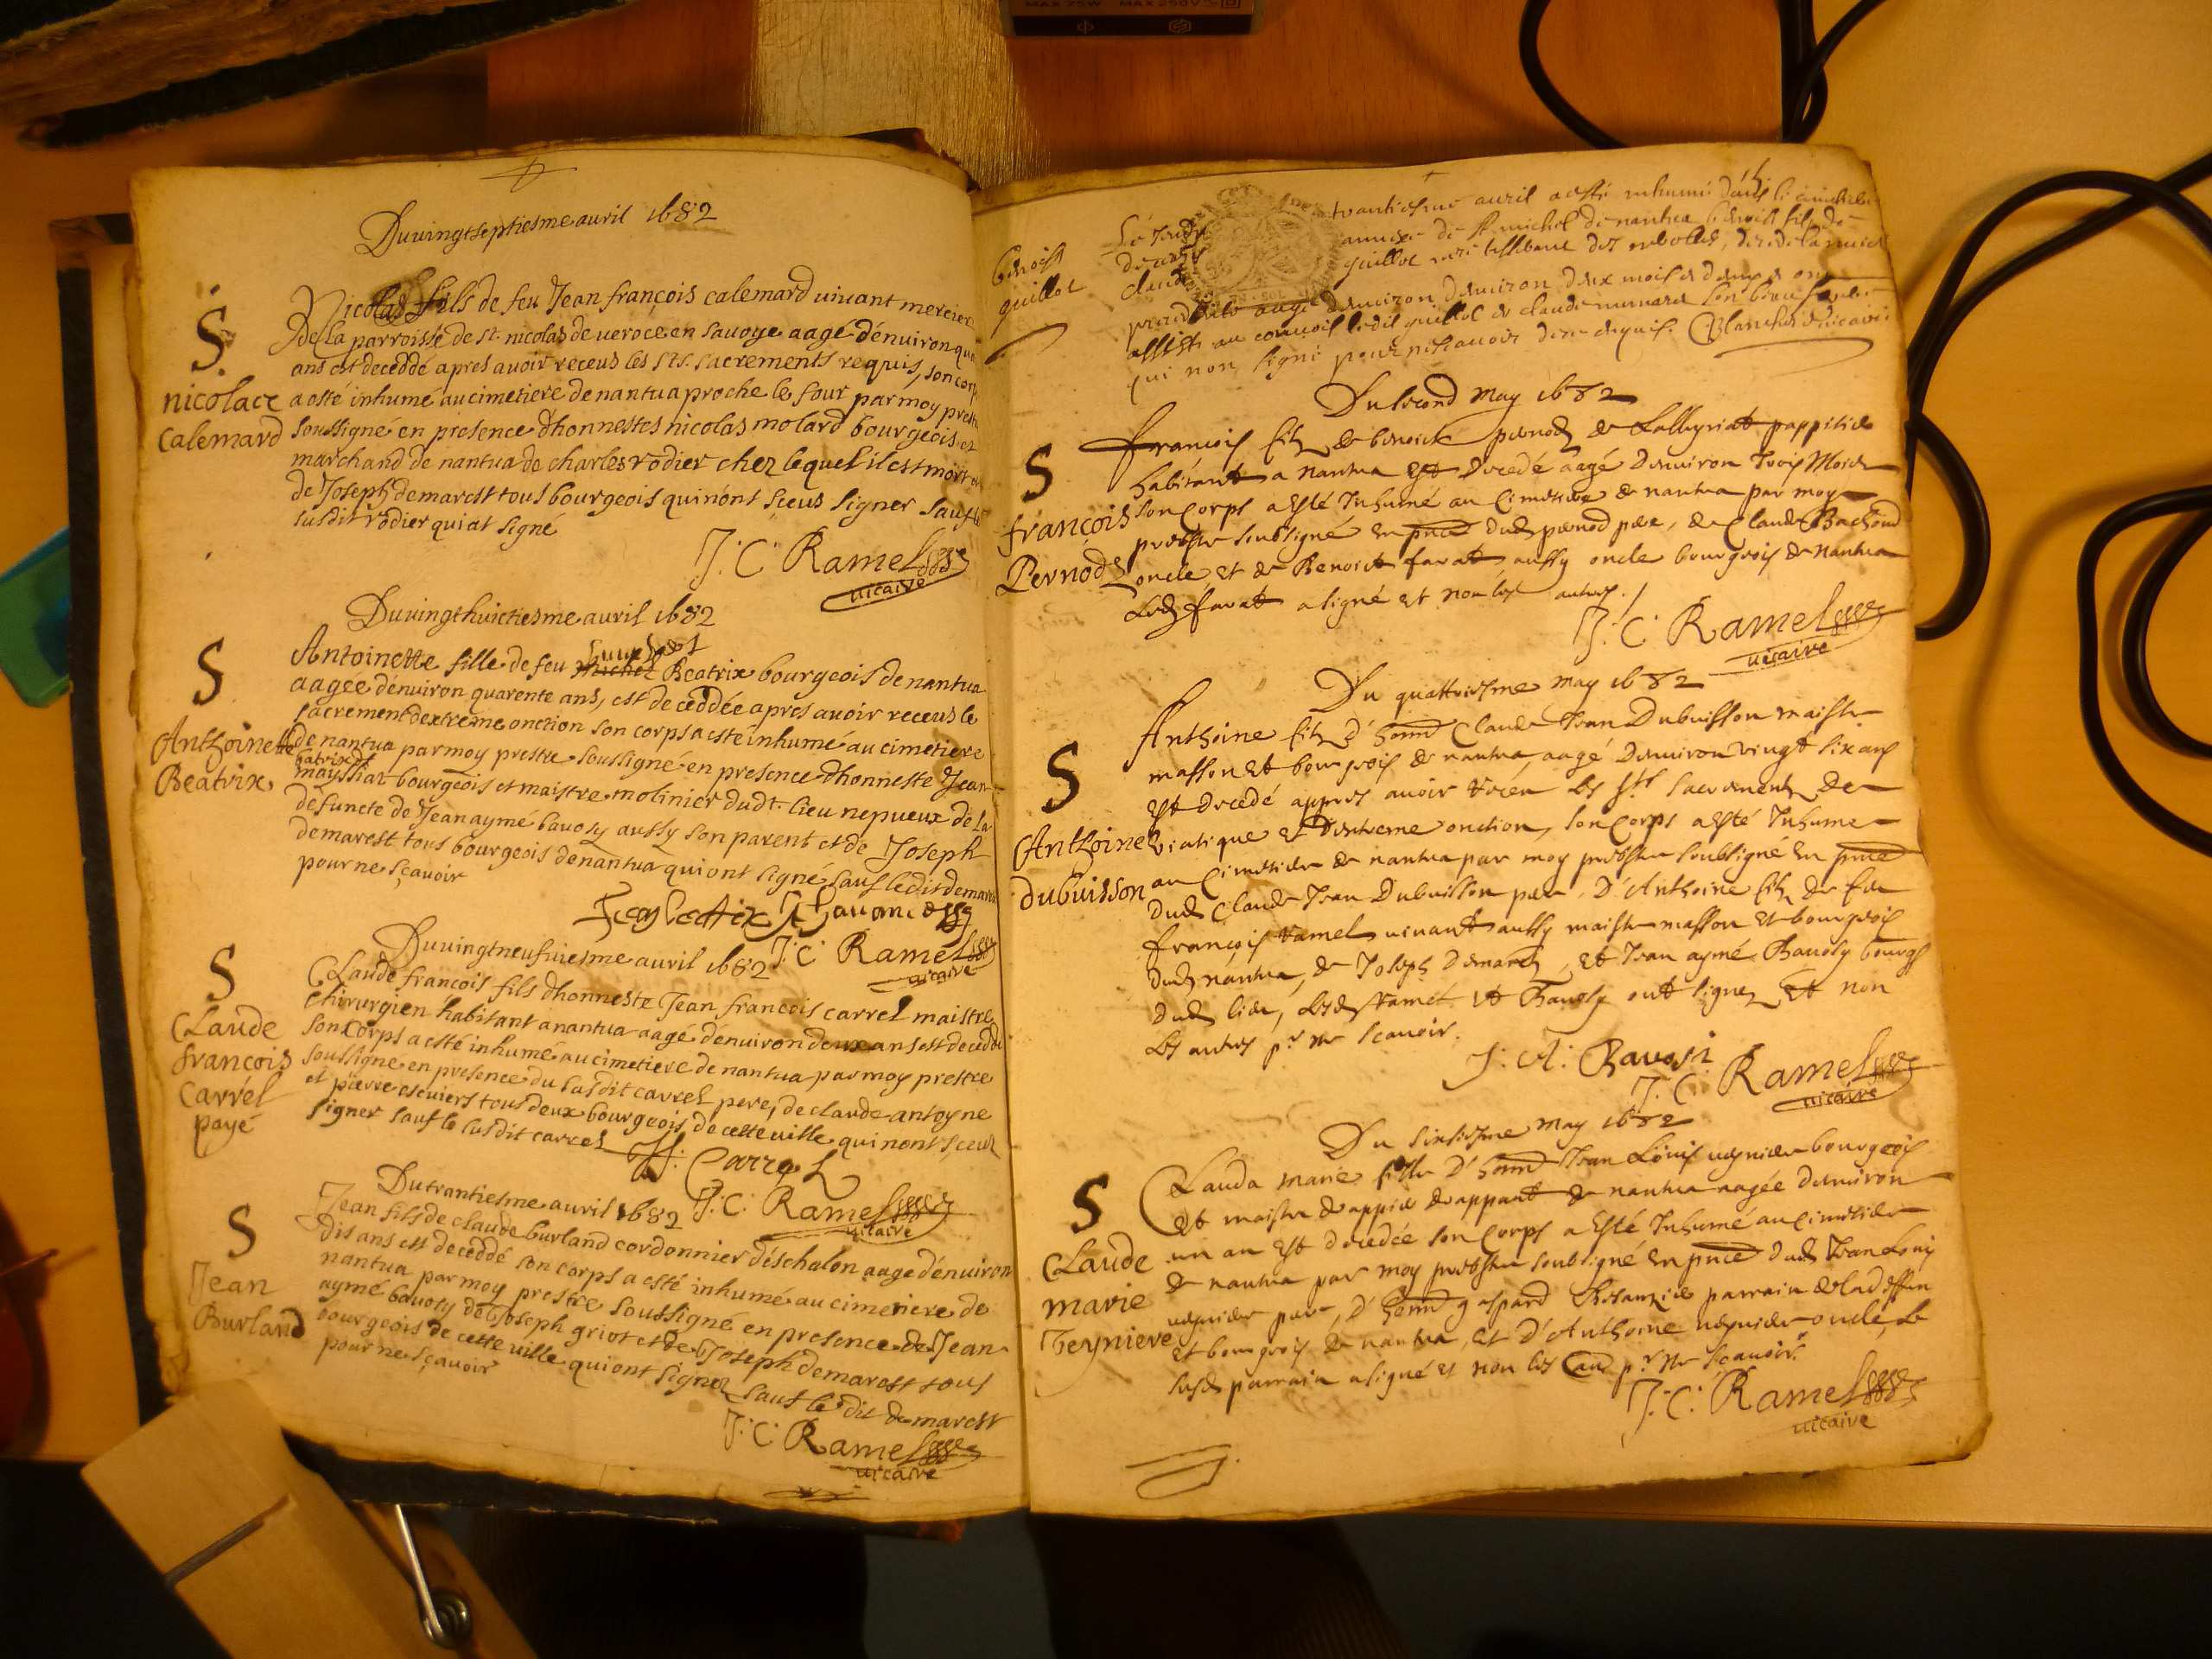 MAX 75W MAX 250V
Du vingt septiesme avril 1682
S.
nicolace
Calemard
Nicolas fils de feu Jean françois calemard vivant mercier
De la parroisse de st. nicolas de veroce en savoye aagé dénviron qua
ans est deceddé apres avoir receus les sts. sacrements requis, son corp
a esté inhumé au cimetiere de nantua proche le four par moy prest
soussigné en presence dhonnestes nicolas molard bourgeois et
marchand de nantua de charles rodier chez lequel il est mort et
de Joseph demarest tous bourgeois qui n'ont sceus signer sauf le
susdit rodier qui at signé
J: C: Ramel
vicaire
Du vingt huictiesme avril 1682
S
Anthoinette
Beatrix
Antoinette fille de feu michel Beatrix bourgeois de nantua
aagée dénviron quarente ans, est deceddée apres avoir receus le
sacrement dextreme onction son corps a esté inhumé au cimetiere
de nantua par moy prestre soussigné en presence dhonneste Jean
batrix dt
mayssiat bourgeois et maistre molinier dudt. lieu nepveux de la
defuncte de Jean aymé bavozy aussy son parent et de Joseph
demarest tous bourgeois de nantua qui ont signé sauf ledit demare
pour ne sçavoir
J: C: Ramel
vicaire
Du vingt neufviesme avril 1682
S
Claude
françois
Carrel
payé
Claude françois fils dhonneste Jean françois carrel maistre
chirurgien habitant a nantua aagé dénviron deux ans est deceddé
son corps a esté inhumé au cimetiere de nantua par moy prestre
soussigné en presence du susdit carrel pere, de claude antoyne
et pierre escuiers tous deux bourgeois de cette ville qui nont sceus
signer sauf le susdit carrel
Carrel
J: C: Ramel
vicaire
Du trantiesme avril 1682
S
Jean
Burland
Jean fils de claude burland cordonnier déschalon aage dénviron
dis ans est deceddé son corps a esté inhumé au cimetiere de
nantua par moy prestre soussigné en presence de Jean
aymé bavozy de Joseph griot et de Joseph demarest tous
bourgeois de cette ville qui ont signez sauf le dit demarest
pour ne sçavoir
J: C: Ramel
vicaire
benoist
guillot
trantiesme avril a esté inhumé dans le cimetiere
annexe de st michel de nantua benoist fils de
claude guillot
aagé denviron deux mois
assisté au convoit ledit guillot et claude son beau frere
qui non signé pour ne scavoir de ce enquis. vicaire
Du second May 1682
S
françois
Pernod
françois filz de benoict pernod de Lalleyriat pappitier
habitant a nantua est decedé aagé denviron trois Mois
son Corps a esté Inhumé au Cimetiere de nantua par moy
prebstre soubsigné en pnce dud pernod pere, de Claude Bachod
oncle et de Benoict favat aussy oncle bourgeois de nantua
Led favat a signé et non les autres.
J: C: Ramel
vicaire
Du quattriesme may 1682
S
Anthoine
dubuisson
Anthoine filz d' honn Claude Jean Dubuisson maistre
masson et bourgeois de nantua, aagé denviron vingt six ans
est decedé appres avoir receu les sts sacrements de
viatique et Dextreme onction, son Corps a esté Inhume
au Cimetiere de nantua par moy prebstre soubsigné en pnce
dud Claude Jean Dubuisson pere, D'Anthoine filz de feu
françois ramel vivant aussy maistre masson et bourgeois
dud nantua, de Joseph Demarez, et Jean aymé Bavozy bourgs
dud lieu, Lesd Ramel et Bavozy ont signez et non
Les autres pr ne scavoir.
J: A: Bavozi
J: C: Ramel
vicaire
Du sixiesme may 1682
S
Claude
marie
Teyniere
Clauda marie fille D' honn Jean Louis
et maistre de nantua aagée denviron
un an est decedée son Corps a esté Inhumé au Cimetiere
de nantua par moy prebstre soubsigné en pnce dud Jean Louis
pere, D' honn gaspard parrain de lad deffun
et bourgeois de nantua, et D'Anthoine oncle, Le
susd parrain a signé et non les pr ne scavoir.
J: C: Ramel
vicaire